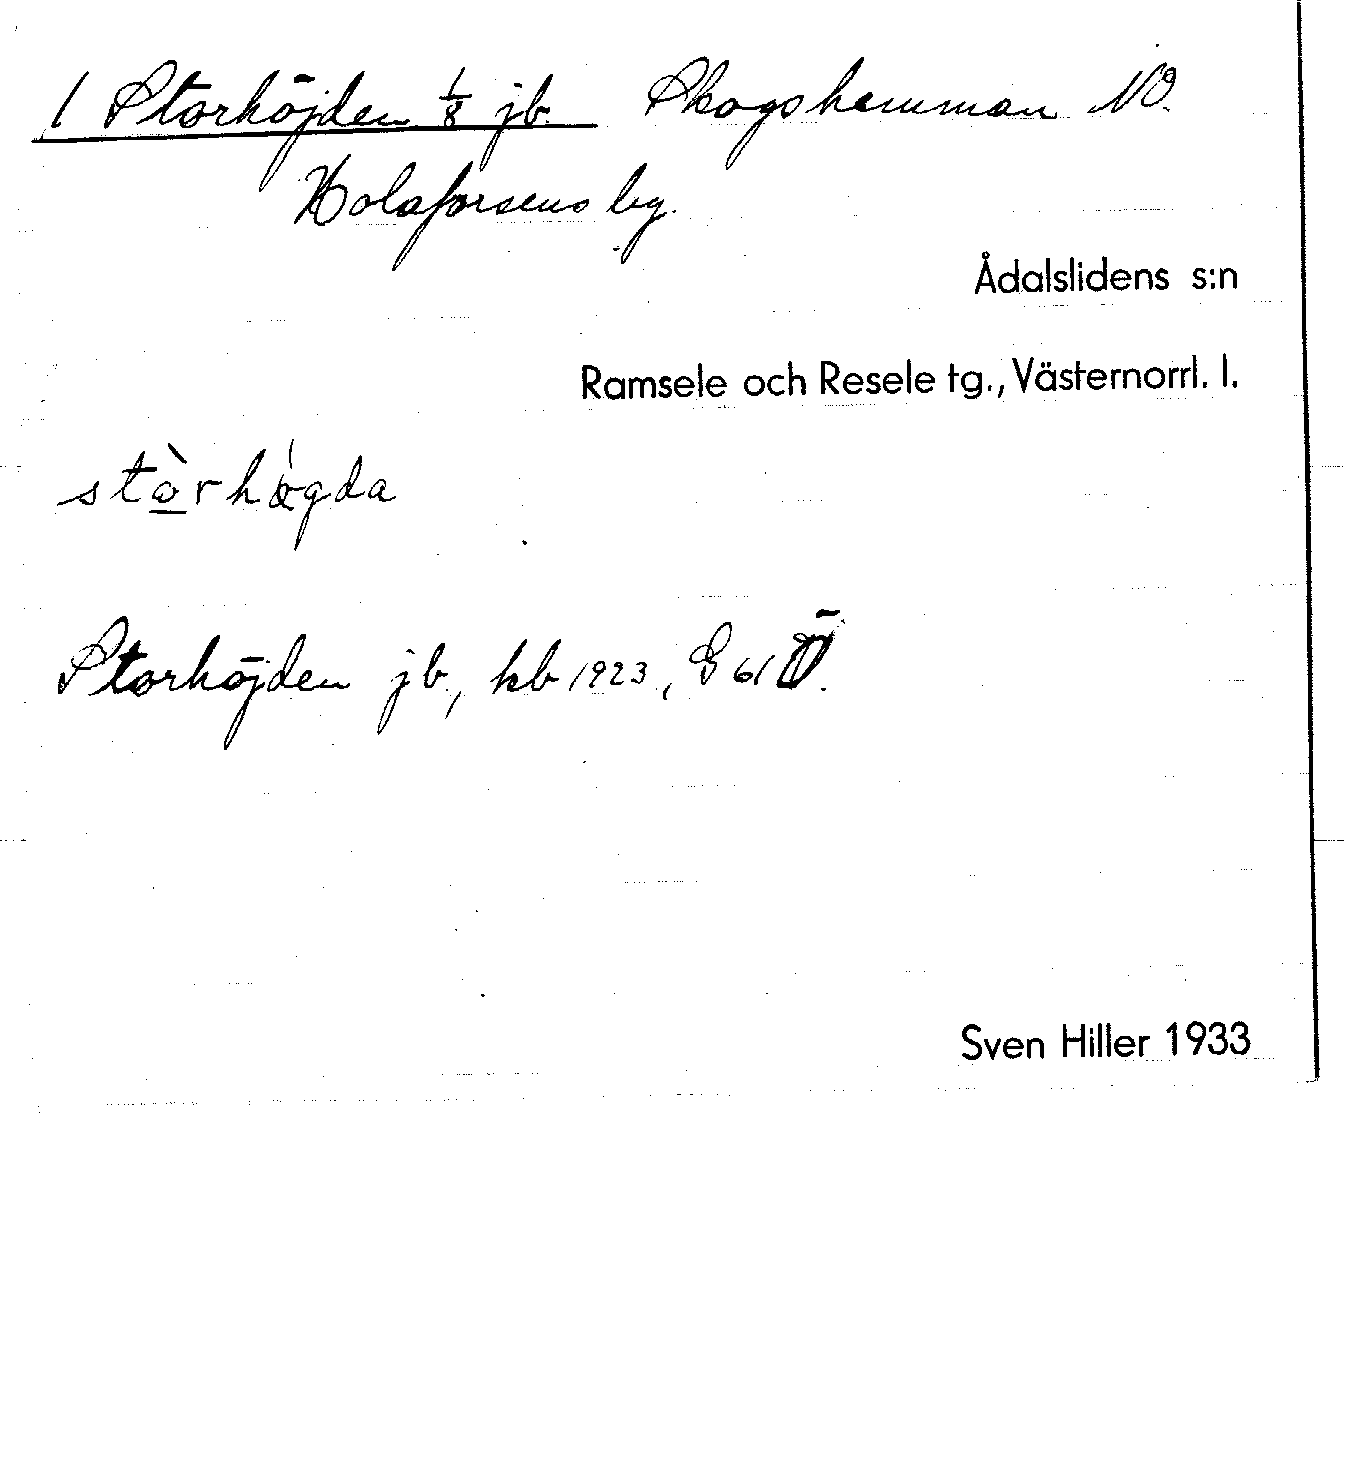 1 Storhöjden 1/8 jb. Skogshemman NO.
Holaforsens by.
Ådalslidens s:n
Ramsele och Resele tg., Västernorrl. l.
stò̲rhǿgda
Storhöjden jb, kb 1923, G 61 Ö.
Sven Hiller 1933